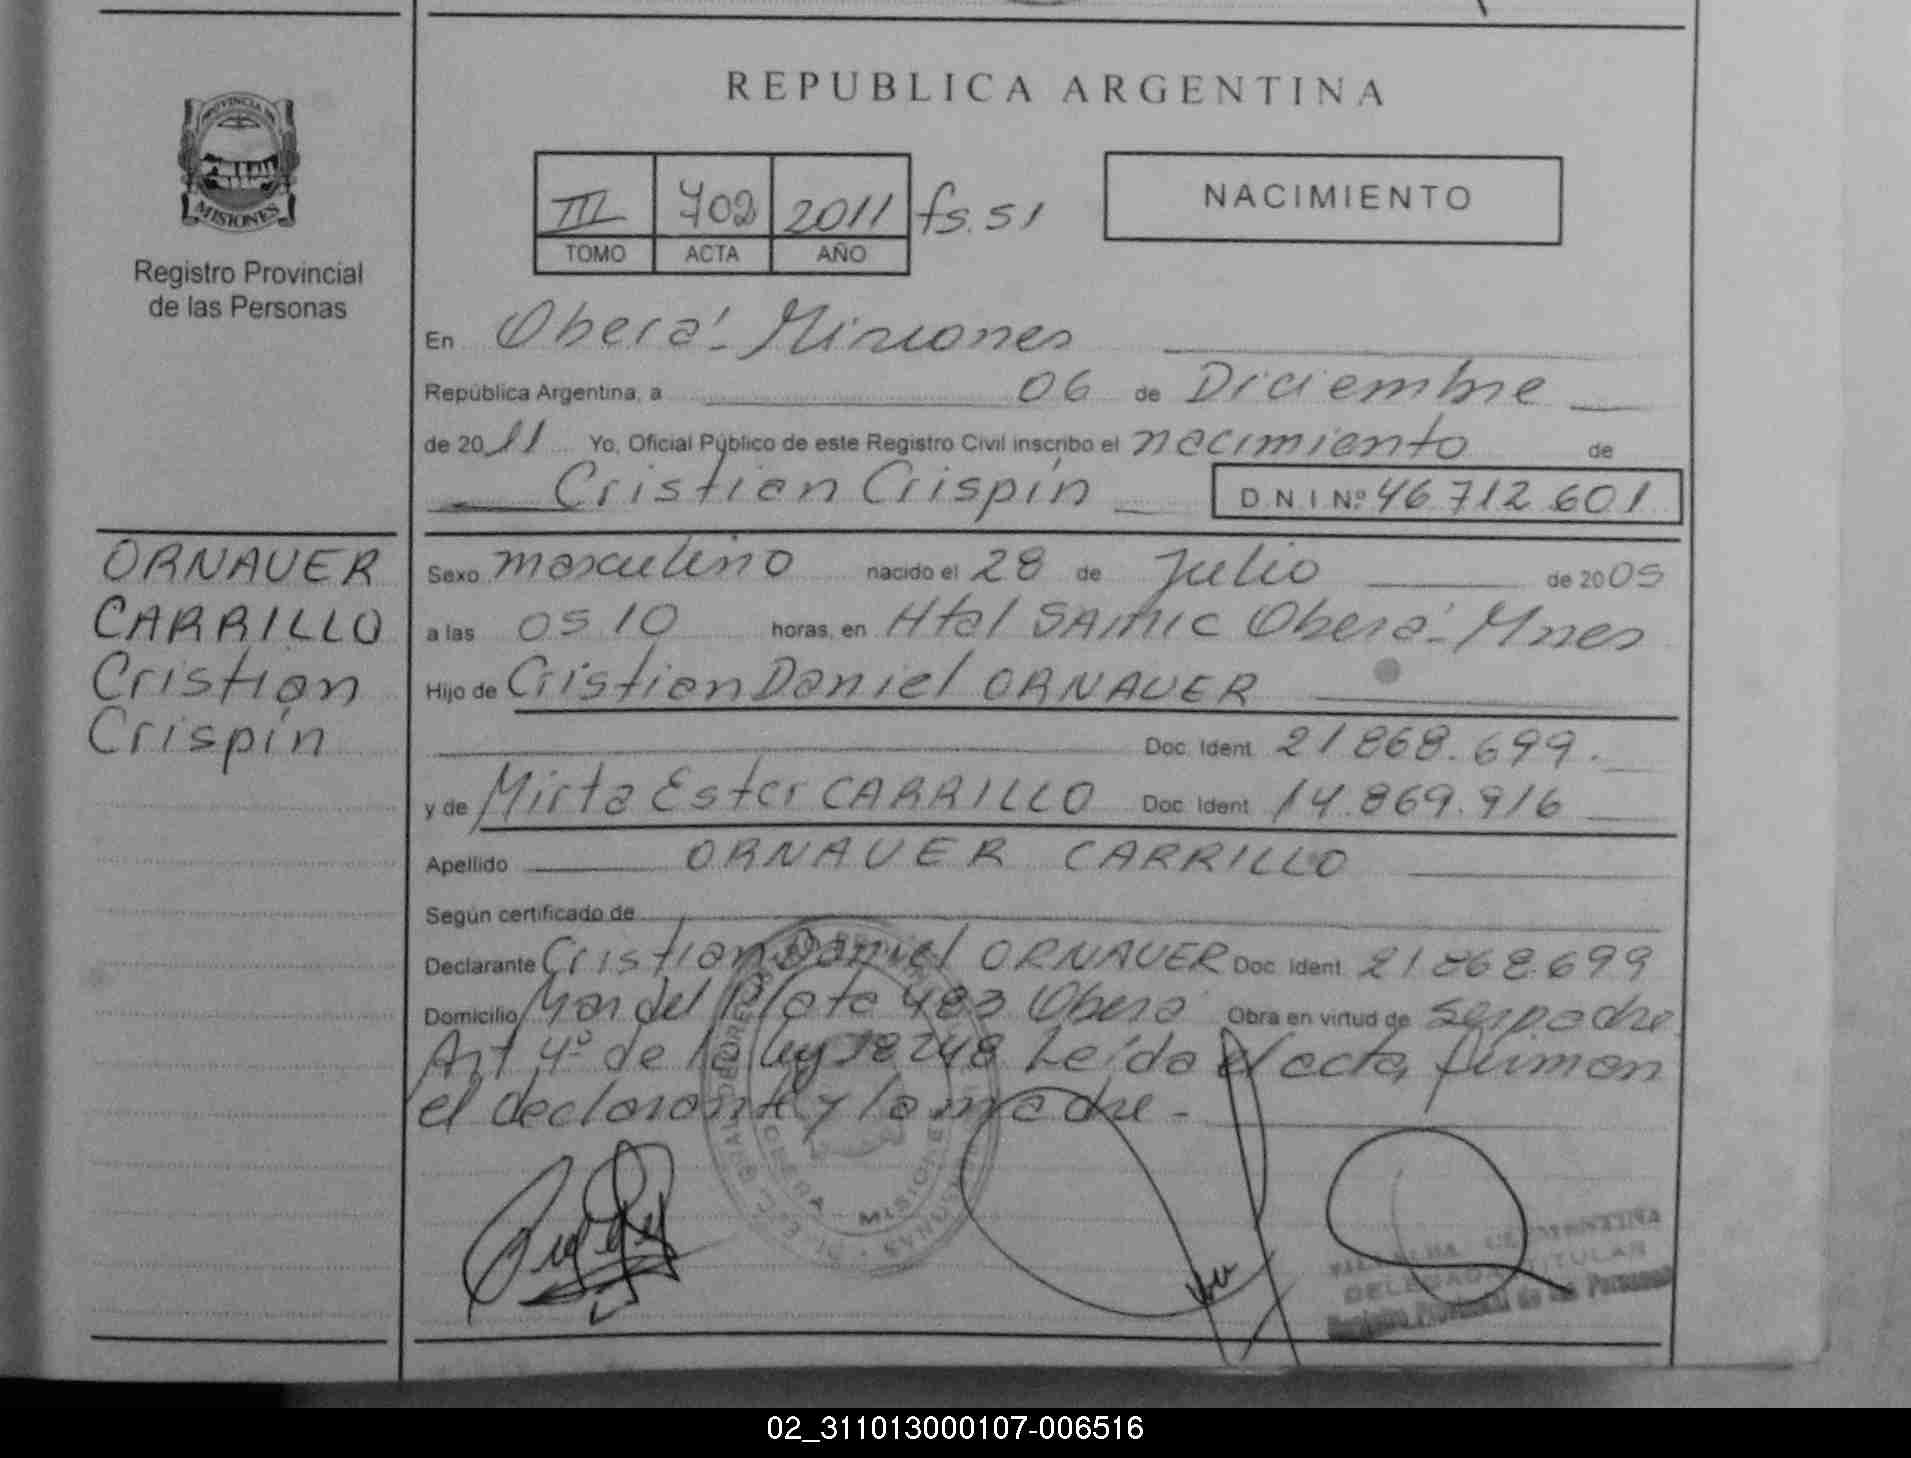 REPUBLICA ARGENTINA
PROVINCIA DE
MISIONES
Registro Provincial
de las Personas
III 702 2011 fs. 51
TOMO ACTA AÑO
NACIMIENTO
En Oberá - Misiones
República Argentina, a 06 de Diciembre
de 2011 Yo, Oficial Público de este Registro Civil inscribo el nacimiento de
Cristian Crispín D.N.I Nº 46.712.601
ORNAUER
CARRILLO
Cristian
Crispín
Sexo masculino nacido el 28 de Julio de 2005
a las 05 10 horas, en Htal SAMIC Oberá - Mnes
Hijo de Cristian Daniel ORNAUER
Doc. Ident. 21 868.699.
y de Mirta Ester CARRILLO Doc. Ident. 14.869.916
Apellido ORNAUER CARRILLO
Según certificado de
Declarante Cristian Daniel ORNAUER Doc. Ident. 21 868.699
Domicilio Mar del Plata 483 Oberá Obra en virtud de ser padre
Art. 4º de la ley 18248 Leída el acta, firman
el declarante y la madre -
OBERA - MISIONES
DELEGADA TITULAR
Registro Provincial de las Personas
02_311013000107-006516